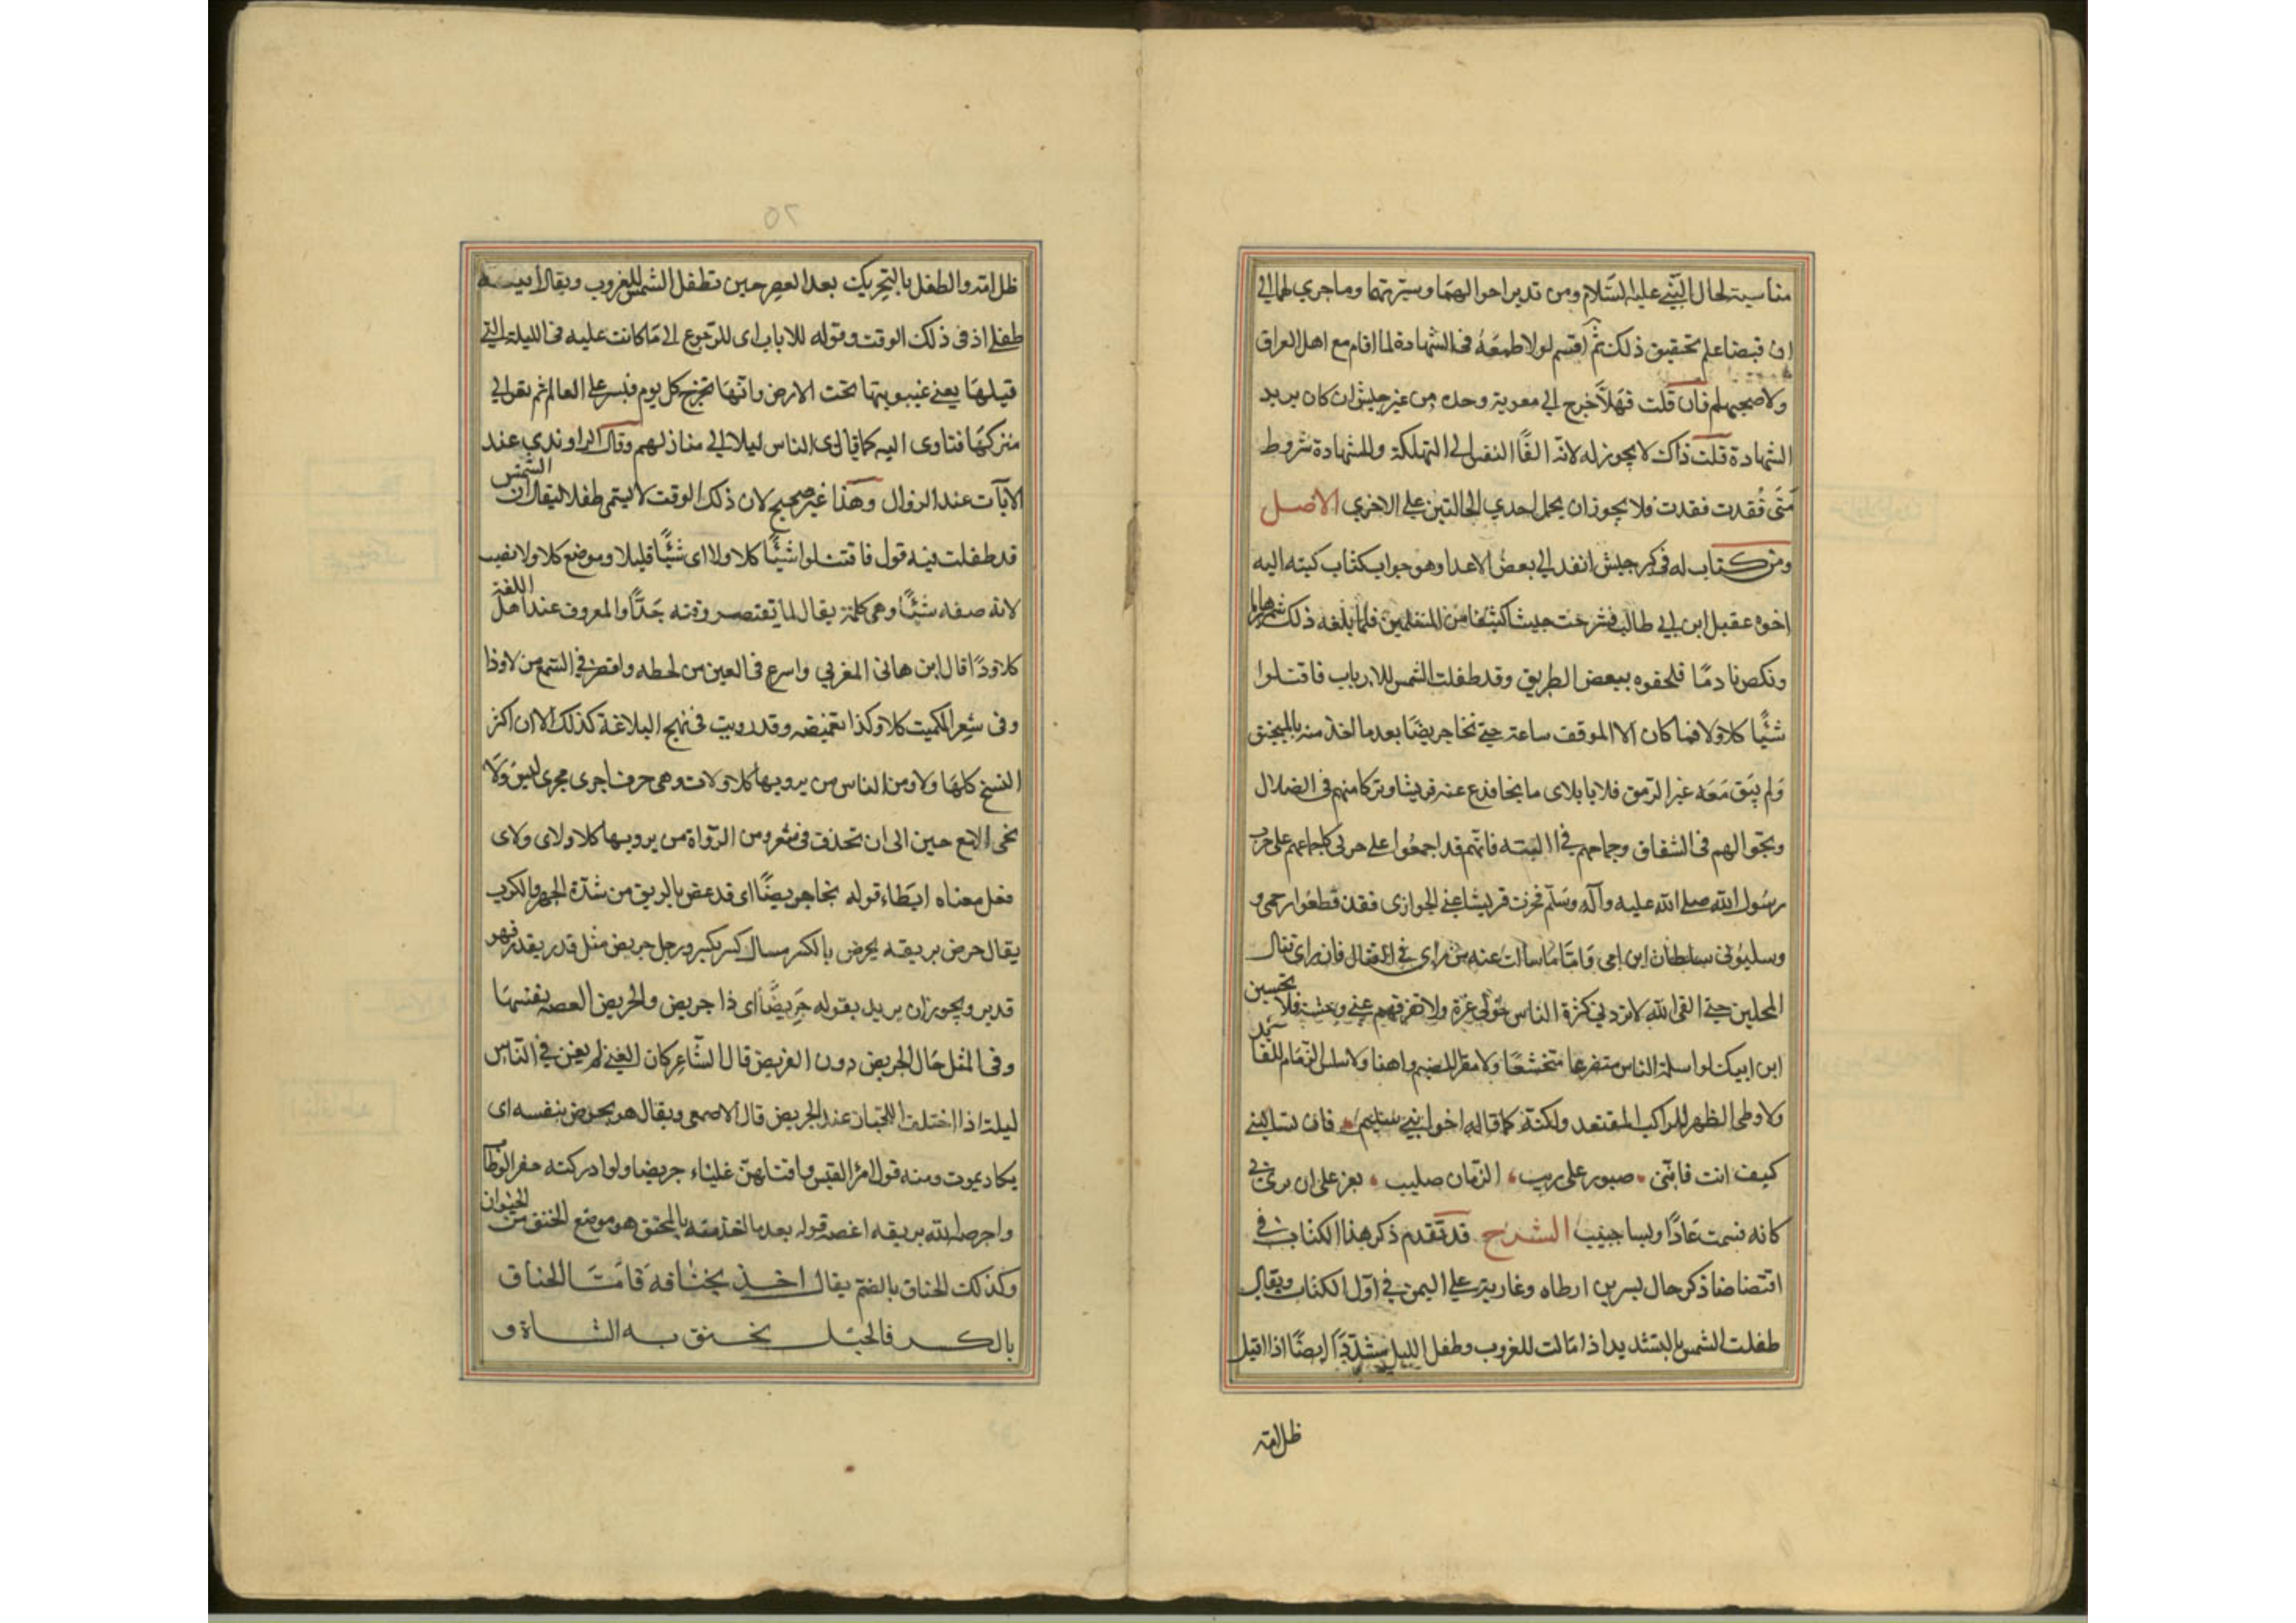 مناسبة لحال النبي عليه السّلام ومن تدبر احوالهما وسيرتهما وما جرى لهما الى
ان قبضا علم تحقيق ذلك ثم اقسم لولا طمعه في الشهادة لما اقام مع اهل العراق
ولا صحبهم فان قلت فهلّا خرج الى معوية وحده من غير جيش ان كان يريد
الشهادة قلت ذاك لا يجوز له لانه القا النفس الى التهلكة وللشهادة شروط
متى فُقدت فقدت فلا يجوز ان يحمل احدي الحالتين على الاخري الاصل
ومن كتاب له في ذكر جيش انفد الى بعض الاعدا وهو جواب كتاب كتبه اليه
اخوه عقيل ابن ابي طالب فسرحت جيشا كثيفا من المسلمين فلما بلغه ذلك شمر هاربا
ونكص نادمًا فلحقوه ببعض الطريق وقد طفلت الشمس للاياب فاقتتلوا
شيئًا كلا ولا فما كان الا الموقف ساعة حتى نجا جريضًا بعد ما اخذ منه بالمخنق
ولم يبق معه غير الرمق فلايا بلاى ما نجا فدع عنه قريشا وتركاضهم في الضلال
وتجوالهم في الشقاق وجماحهم في التيه فانهم قد اجمعوا على حربي كاجماعهم على حرب
رسول الله صلى الله عليه وآله وسلم فجزت قريشا عني الجوازى فقد قطعوا رحمى و
وسلبوني سلطان ابن امى واما ما سالت عنه من راى في القتال فان راى قتال
المحلين حتى القى الله لا تزدني كثرة الناس حولي عزة ولا تفرقهم عني وحشة فلا تحسبن
ابن ابيك لو اسلمة الناس متضرعا متخشعًا ولا مقرا للضيم واهنا ولا سلس الزمام للقائد
ولا وطى الظهر للراكب المقتعد ولكنه كما قال اخوا بني سليم فان تسالينى
كيف انت فانّنى صبور على ريب الزمان صليب يعز على ان ترى بي
كابه فتشمت عادًا وليسا حبيب الشرح قد تقدم ذكر هذا الكتاب في
اقتصاصنا ذكر حال بسر بن ارطاه وغاريته على اليمن في اول الكتاب ويقال
طفلت الشمس بالتشديد اذا مالت للغروب وطفل الليل مشدّدًا ايضًا اذا اقبل
ظلامه
ظلامه والطفل بالتحريك بعد العصر حين تطفل الشمس للغروب ويقال اتيته
طفلا اذ في ذلك الوقت وقوله للاياب اى للرجوع الى ما كانت عليه في الليلة التي
قبلها يعني غيبوبتها تحت الارض وانها تخرج كل يوم فتسر على العالم ثم تعود الى
منزلها فتاوى اليه كما ياوى الناس ليلا الى منازلهم وقال الراوندي عند
الاياب عند الزوال وهذا غير صحيح لان ذلك الوقت لا يسمى طفلا ليقال ان الشمس
قد طفلت فيه قول فاقتتلوا شيئًا كلا ولا اى شيئًا قليلا وموضع كلا ولا نصب
لانه صفه شيئًا وهي كلمة يقال لما يقتصر وقته جدًّا والمعروف عند اهل اللغة
كلا وذا قال ابن هانى المغربي واسرع في العين من لحظه واقصر في السمع من لا وذا
وفى شعر الكميت كلا وكذا تغميضه وقد رويت في نهج البلاغة كذلك الا ان اكثر
النسخ كلها ولا ومن الناس من يرويها كلا ولات وهى حرف اجرى مجرى ليس ولا
تجى الا مع حين الى ان تحذف فى شعر ومن الرواة من يرويها كلا ولاى ولاى
فعل معناه ابطاء قوله نجا جريضًا اى قد غص بالريق من شدّة الجهد والكرب
يقال جرض بريقه يجرض بالكسر مثال كسر يكسر ورجل جريض مثل قدر يقدر فهو
قدير ويجوز ان يريد بقوله جريضًا اى ذا جريض والجريض الغصه نفسها
وفى المثل حال الجريض دون القريض قال الشاعر كان الفتى لم يغن في الناس
ليلة اذا اختلف اللحيان عند الجريض قال الاصمعي ويقال هو يجرض بنفسه اى
يكاد يموت ومنه قول امرؤ القيس وافلتهن علباء جريضا ولو ادركته صفر الوطاب
واجرضه الله بريقه اغصه قوله بعد ما اخذ منه بالمخنق هو موضع الخنق من الحيوان
وكذلك الخناق بالضم يقال اخذ بخناقه فامّا الخناق
بالكسر فالحبل يخنق به الشاة و